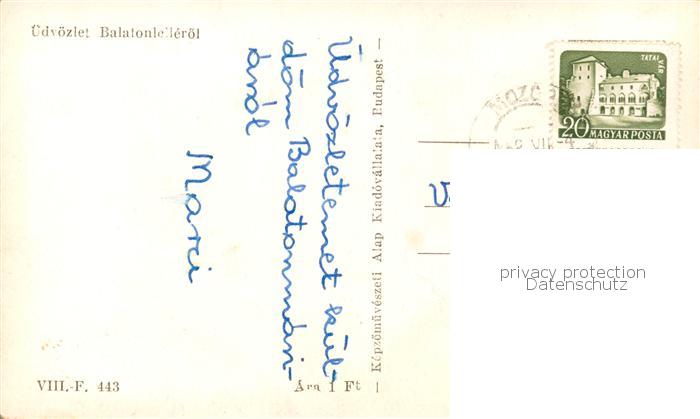 Üdvözlet Balatonlelléről
Üdvözletemet kül-
döm Balatonmári-
áról
Marci
Képzőművészeti Alap Kiadóvállalata, Budapest
VIII.-F. 443
Ára 1 Ft
TATAI
VÁR
20 MAGYAR POSTA
privacy protection
Datenschutz